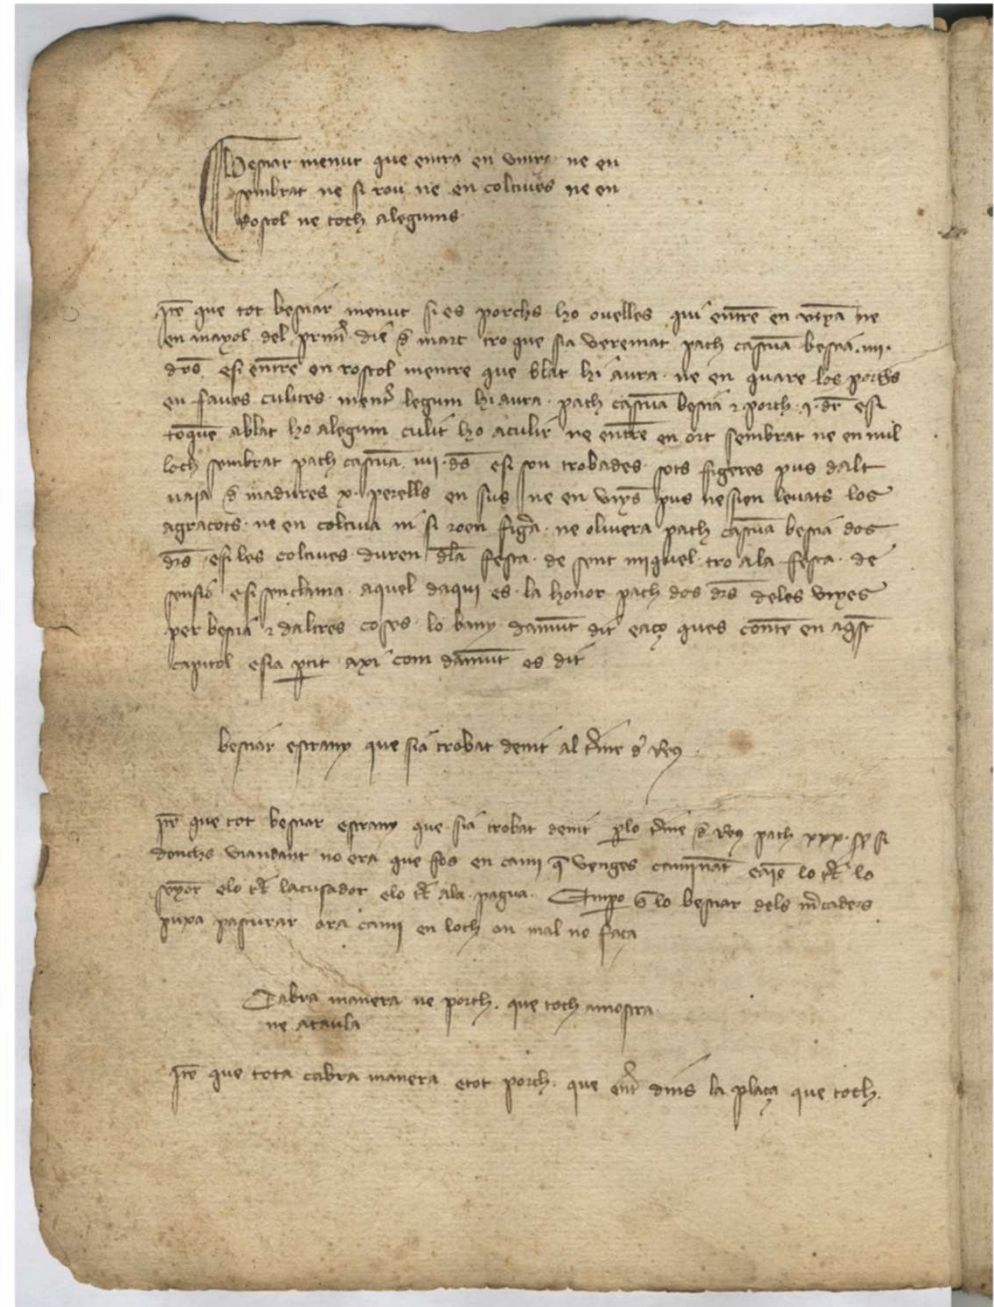 Bestiar menut que entra en vinya ne en
sembrat ne si rou ne en coltives ne en
Rostol ne toch a legums
Ite que tot bestiar menut si es porchs ho ovelles qui entre en vinya ne
en mayol del primer die de març tro que sia veremat pach cascuna bestia .IIII.
drs e si entre en rostol mentre que blat hi aura ne en guare los porchs
en faves culites mentre legum hi aura pach cascuna bestia porch .I. dr e si
toquen a blat ho a legum culit ho a culir ne entre en ort sembrat ne en nul
loch sembrat pach cascuna IIII ds e si son trobades sots figeres pus dalt
naia de madures X perells en sus ne en vinyes pus nessien levats los
agracots ne en coltiva ni si roen figera ne olivera pach cascuna bestia dos
drs e si les coltives duren dela festa de sent miquel tro a la festa de
e si sen clama aquel daqui es la honor pach dos drs deles vinyes
per bestia daltres coses lo bany damunt dit e aço ques conte en aquest
capitol e sia partit axi com damunt es dit
bestiar estrany que sia trobat denit al terme de Reg
Ite que tot bestiar estrany que sia trobat denit per lo terme de Reg pach XXX ss si
donchs viandant no era que fos en cami que venges caminant lo terç lo
senyor e lo terç lacusador e lo terç a la pagua Empero que lo bestiar dels mercaders
puxa pasturar ora cami en loch on mal no faça
Cabra manera ne porch que toch a mostra
ne a taula
Ite que tota cabra manera e tot porch que entre dins la plaça que toch